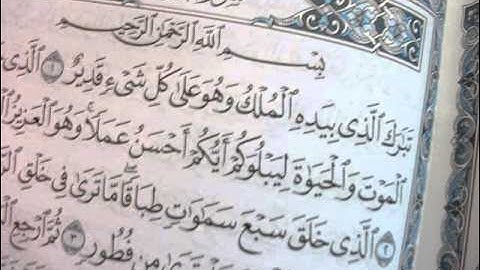 بِسْمِ ٱللَّهِ ٱلرَّحْمَٰنِ ٱلرَّحِيمِ
تَبَٰرَكَ ٱلَّذِى بِيَدِهِ ٱلْمُلْكُ وَهُوَ عَلَىٰ كُلِّ شَىْءٍ قَدِيرٌ ١ ٱلَّذِى
ٱلْمَوْتَ وَٱلْحَيَوٰةَ لِيَبْلُوَكُمْ أَيُّكُمْ أَحْسَنُ عَمَلًا ۚ وَهُوَ ٱلْعَزِيزُ
٢ ٱلَّذِى خَلَقَ سَبْعَ سَمَٰوَٰتٍ طِبَاقًا ۖ مَّا تَرَىٰ فِى خَلْقِ
تَرَىٰ مِن فُطُورٍ ٣ ثُمَّ ٱرْجِعِ